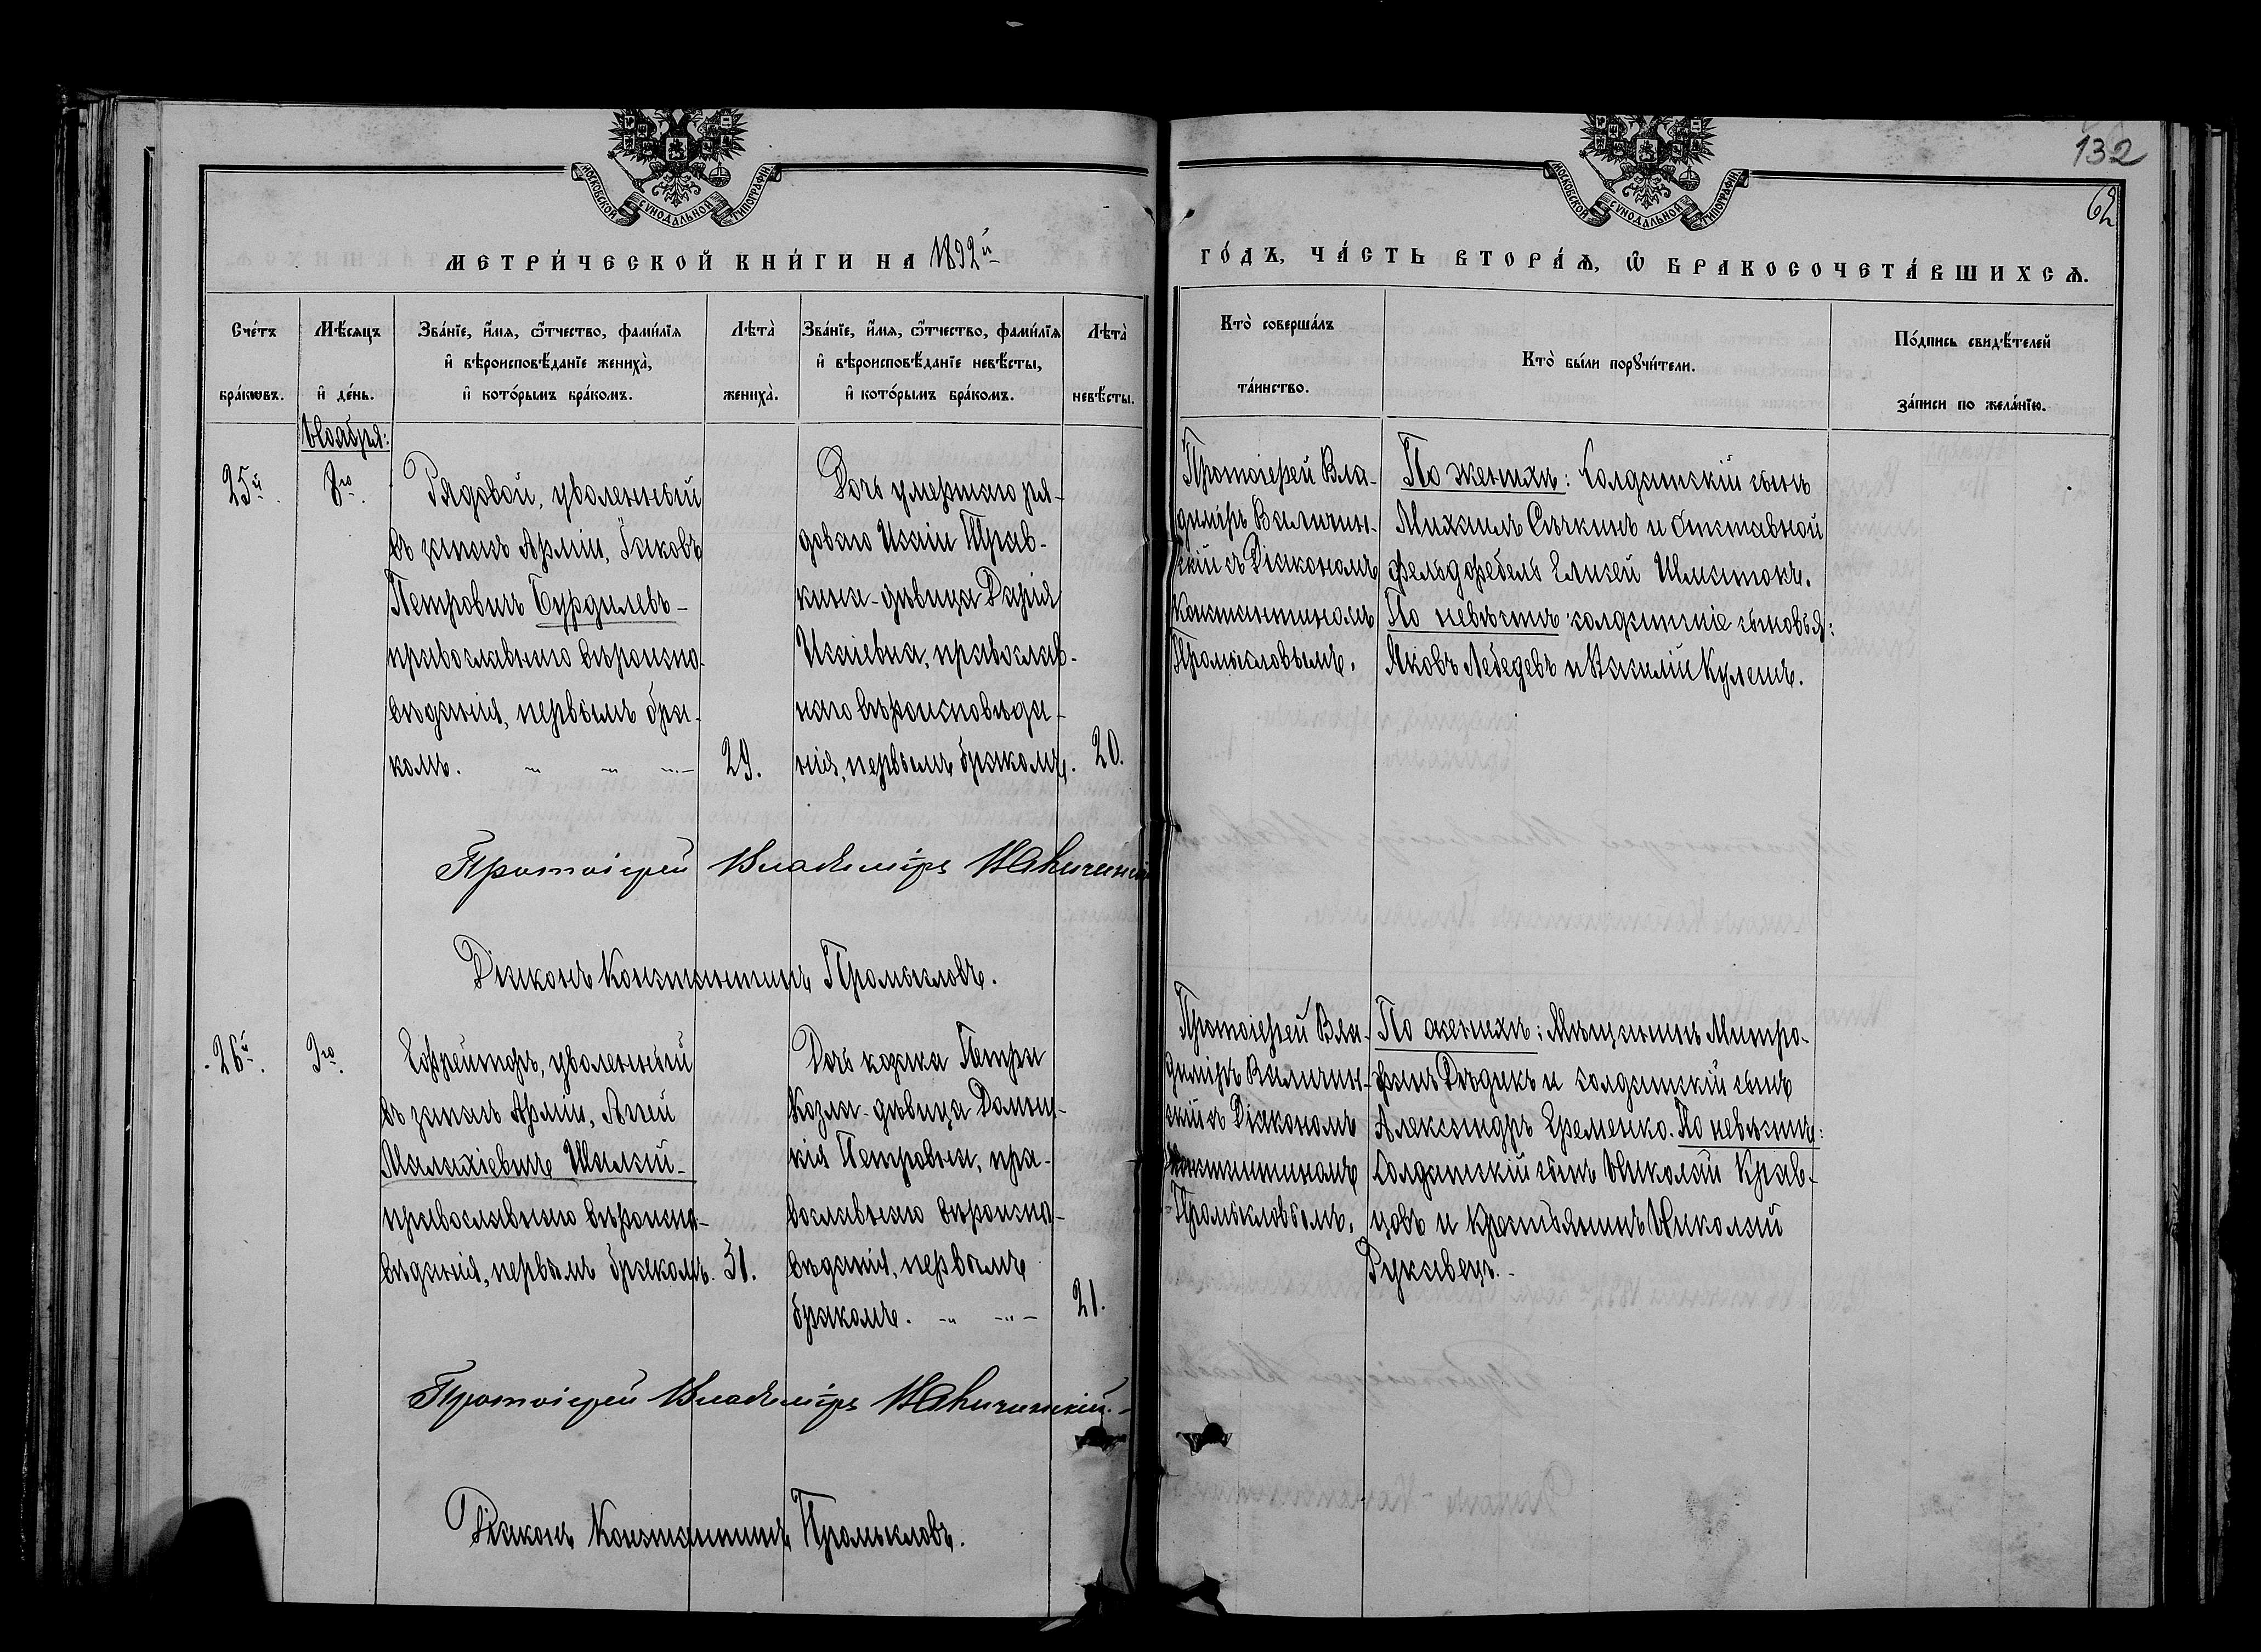 132
62
МОСКОВСКОЙ СѴНОДАЛЬНОЙ ТИПОГРАФІИ
МОСКОВСКОЙ СѴНОДАЛЬНОЙ ТИПОГРАФІИ
МЕТРИ́ЧЕСКОЙ КНИ́ГИ НА 1892й
ГО́ДЪ, ЧА́СТЬ ВТОРА́Ѧ, Ѿ БРАКОСОЧЕТА́ВШИХСѦ.
Сче́тъ
бра́кѡвъ.
Мѣ́сяцъ
и҆ де́нь.
Зва́нїе, и҆́мѧ, ѻ҆́тчество, фами́лїя
и҆ вѣроисповѣ́данїе жениха̀,
и҆ кото́рымъ бра́комъ.
Лѣта̀
жениха̀.
Зва́нїе, и҆́мѧ, ѻ҆́тчество, фами́лїя
и҆ вѣроисповѣ́данїе невѣ́сты,
и҆ кото́рымъ бра́комъ.
Лѣта̀
невѣ́сты.
Кто̀ соверша́лъ
та́инство.
Кто̀ бы́ли порꙋчи́тели.
По́дпись свидѣ́телей
за́писи по жела́нїю.
Ноября:
25й.
8го.
Рядовой, уволенный
въ запасъ Арміи, Іаковъ
Петровичъ Бурдилевъ -
православнаго вѣроиспо-
вѣданія, первымъ бра-
комъ.
29.
Дочь умершаго ря-
доваго Исаіи Трав-
кина - дѣвица Дарія
Исаіевна, православ-
наго вѣроисповѣда-
нія, первымъ бракомъ.
20.
Протоіерей Вла-
диміръ Валичин-
скій съ Діакономъ
Константиномъ
Промысловымъ.
По женихѣ: Солдатскій сынъ
Михаилъ Сѣчкинъ и Отставной
фельдфебель Елисей Шматокъ.
По невѣстѣ солдатскіе сыновья:
Яковъ Лебедевъ и Василій Кулешъ.
Протоіерей Владиміръ
Діаконъ Константинъ Промысловъ.
26й.
9го.
Ефрейторъ, уволенный
въ запасъ Арміи, Аггей
Малахіевичъ Шалай -
православнаго вѣроиспо-
вѣданія, первымъ бракомъ.
31.
Дочь козака Петра
Козла - дѣвица Домни-
кія Петровна, пра-
вославнаго вѣроиспо-
вѣданія, первымъ
бракомъ.
21.
Протоіерей Вла-
диміръ Валичин-
скій съ Діакономъ
Константиномъ
Промысловымъ.
По женихѣ: Мѣщанинъ Митро-
фанъ Дѣдикъ и солдатскій сынъ
Александръ Еременко. По невѣстѣ:
Солдатскій сынъ Николай Крав-
цовъ и Крестьянинъ Николай
Рукавецъ.-
Протоіерей Владиміръ
Діаконъ Константинъ Промысловъ.